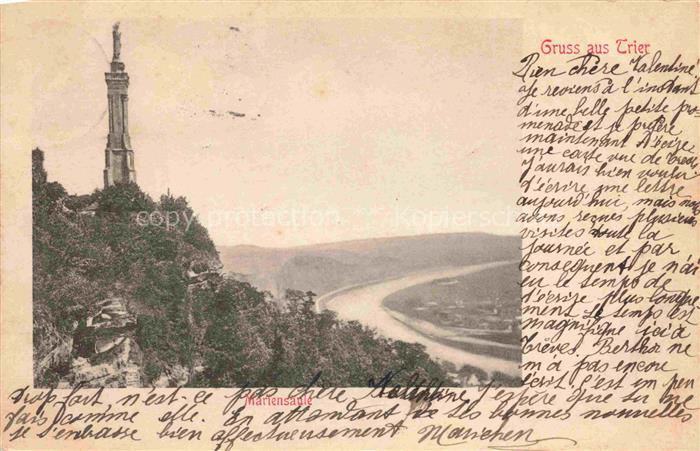 Gruss aus Trier
Bien chère Valentine
Je reviens à l'instant
d'une belle petite pro-
menade et je préfère
maintenant d'écrire
une carte vue de
J'aurais bien voulu
d'écrire une lettre
aujourd'hui, mais nous
avons plusieurs
visites toute la
journée et par
conséquent je n'ai
eu le temps de
t'écrire plus longue-
ment. Le temps est
magnifique ici à
Trèves. Bertha ne
m'a pas encore
écrit. C'est un peu
trop fort, n'est-ce pas chère Valentine, j'espère que tu ne
fais comme elle. En attendant de tes bonnes nouvelles
je t'embrasse bien affectueusement Mariechen
Mariensäule
copy-photo
Antikschiff
copyrig
Kopierschutz